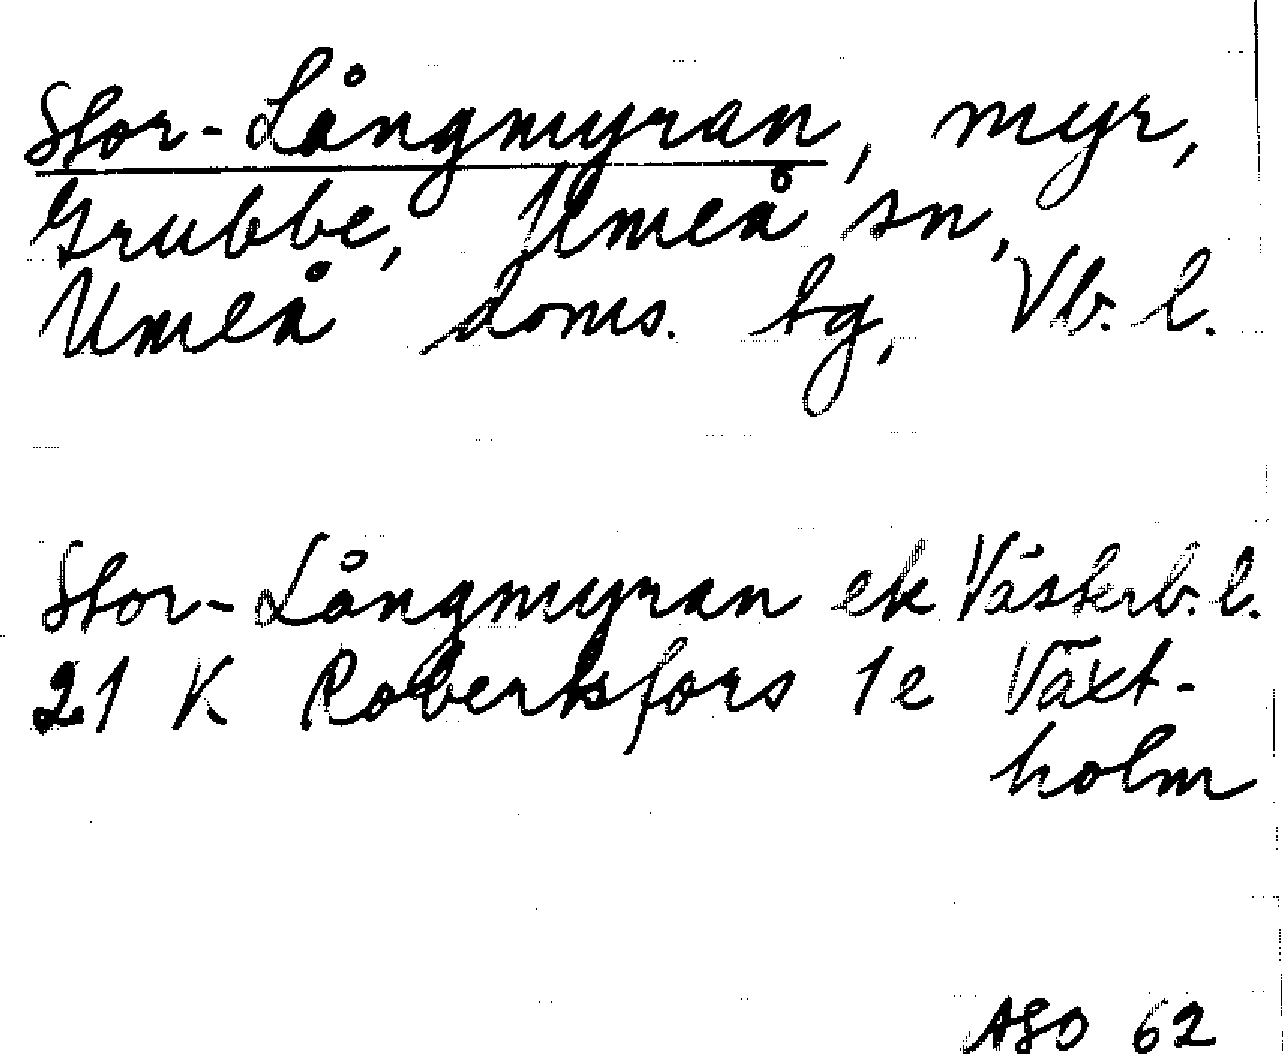 Stor-Långmyran, myr,
Grubbe, Umeå sn,
Umeå doms. tg, Vb. l.
Stor-Långmyran ek Västerb. l.
21 K Robertsfors 1e Växt-
holm
ASO 62